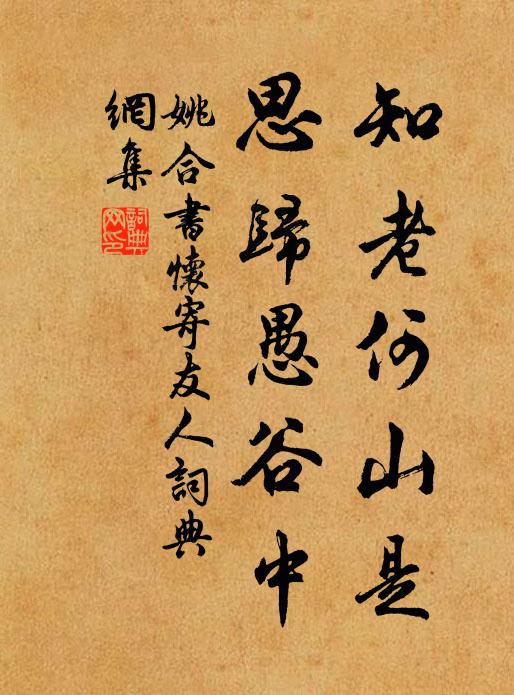 知老何山是
思歸愚谷中
姚合書懷寄友人詞典
網集
詞典
网印